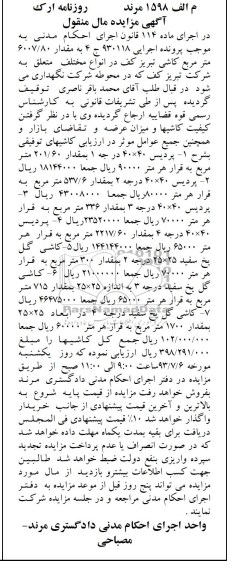 م الف ۱۵۹۸ مرند روزنامه ارک
آگهی مزایده مال منقول
در اجرای ماده ۱۱۴ قانون اجرای احکام مدنی به
موجب پرونده اجرایی ۹۳۰۱۱۸ ج ۴ به مقدار ۶۰۰۷/۸۰
متر مربع کاشی تبریز کف در انواع مختلف متعلق به
شرکت تبریز کف که در محوطه شرکت نگهداری می
شود در قبال طلب آقای محمد باقر ناصری توقیف
گردیده پس از طی تشریفات قانونی به کارشناس
رسمی قوه قضاییه ارجاع گردیده وی با در نظر گرفتن
کیفیت کاشیها و میزان عرضه و تقاضای بازار و
همچنین جمیع عوامل موثر در ارزیابی کاشیهای توقیفی
بشرح ۱- پردیس ۴۰×۴۰ در جه ۱ بمقدار ۲۰۱/۶۰ متر
مربع به قرار هر متر ۹۰۰۰۰ ریال جمعا ۱۸۱۴۴۰۰۰ ریال
۲- پردیس ۴۰×۴۰ درجه ۲ بمقدار ۵۳۷/۶ متر مربع به
قرار هر متر ۸۰۰۰۰ریال جمعا ۴۳۰۰۸۰۰۰ ریال ۳-
پردیس ۴۰×۴۰ درجه ۳ بمقدار ۳۳۶ متر مربع به قرار
هر متر ۷۰۰۰۰ ریال جمعا ۲۳۵۲۰۰۰۰ریال ۴- پردیس
۴۰×۴۰ درجه ۴ بمقدار ۲۲۱۷/۶۰ متر مربع به قرار هر
متر ۶۵۰۰۰ ریال جمعا ۱۴۴۱۴۴۰۰۰ ریال ۵-کاشی گل
یخ سفید ۲۵×۲۵ درجه ۲ بمقدار ۳۰۰ متر مربع به قرار
هر متر ۷۰۰۰۰ ریال جمعا ۲۱۰۰۰۰۰۰ ریال ۶- کاشی
گل یخ سفید درجه ۳ به اندازه ۲۵×۲۵ بمقدار ۷۱۵ متر
مربع به قرار هر متر ۶۵۰۰۰ ریال جمعا ۴۶۴۷۵۰۰۰ ریال
۷-کاشی گل یخ سفید درجه ۴ در ابعاد ۲۵×۲۵
بمقدار ۱۷۰۰ متر مربع به قرار هر متر ۶۰۰۰۰ ریال جمعا
۱۰۲/۰۰۰/۰۰۰ ریال جمع کل کاشیها را مبلغ
۳۹۸/۲۹۱/۰۰۰ ریال ارزیابی نموده که روز یکشنبه
مورخه ۹۳/۷/۶ساعت ۹:۰۰ الی ۱۱:۰۰ صبح از طریق
مزایده در دفتر اجرای احکام مدنی دادگستری مرند
بفروش خواهد رفت مزایده از قیمت پایه شروع به
بالاترین و آخرین قیمت پیشنهادی از جانب خریدار
واگذار خواهد شد ۱۰٪ قیمت پیشنهادی فی المجلس
دریافت برای بقیه بمدت یکماه مهلت داده خواهد شد
که در صورت انصراف یا عدم پرداخت مزایده تجدید
سپرده واریزی بنفع دولت ضبط خواهد شد طالبین
جهت کسب اطلاعات بیشترو بازدید از مال مورد
مزایده می تواند پنج روز قبل از موعد مزایده به دفتر
اجرای احکام مدنی مراجعه و در جلسه مزایده شرکت
نمایند .
واحد اجرای احکام مدنی دادگستری مرند-
مصباحی